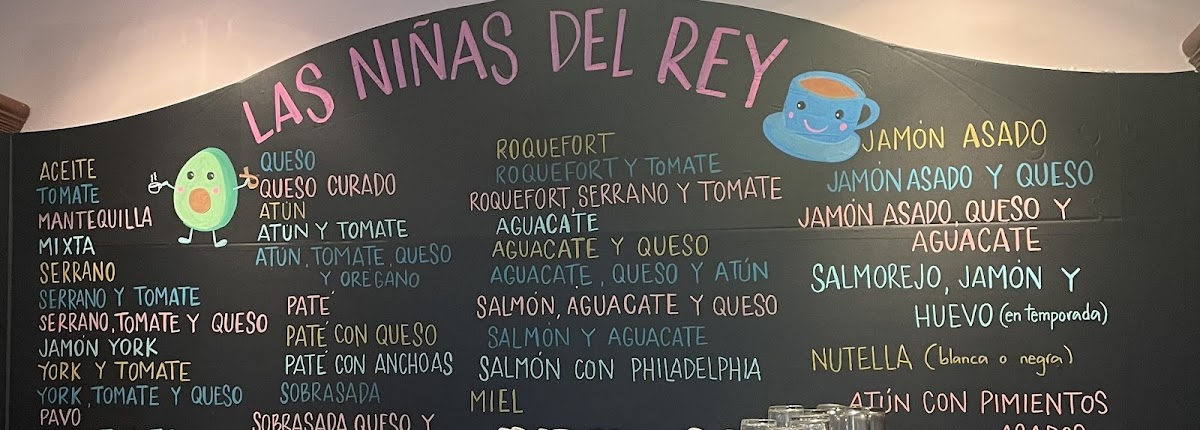 LAS NIÑAS DEL REY
ACEITE
TOMATE
MANTEQUILLA
MIXTA
SERRANO
SERRANO Y TOMATE
SERRANO, TOMATE Y QUESO
JAMÓN YORK
YORK Y TOMATE
YORK, TOMATE Y QUESO
PAVO
QUESO
QUESO CURADO
ATÚN
ATÚN Y TOMATE
ATÚN, TOMATE, QUESO
Y OREGANO
PATÉ
PATÉ CON QUESO
PATÉ CON ANCHOAS
SOBRASADA
SOBRASADA QUESO Y
ROQUEFORT
ROQUEFORT Y TOMATE
ROQUEFORT, SERRANO Y TOMATE
AGUACATE
AGUACATE Y QUESO
AGUACATE, QUESO Y ATÚN
SALMÓN, AGUACATE Y QUESO
SALMÓN Y AGUACATE
SALMÓN CON PHILADELPHIA
MIEL
JAMÓN ASADO
JAMÓN ASADO Y QUESO
JAMÓN ASADO, QUESO Y
AGUACATE
SALMOREJO, JAMÓN Y
HUEVO (en temporada)
NUTELLA (blanca o negra)
ATÚN CON PIMIENTOS